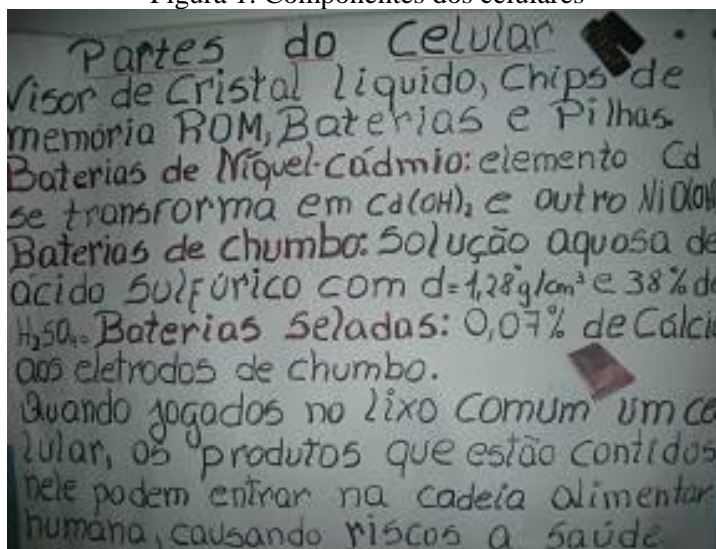 Figura 1: Componentes dos celulares
Partes do Celular
Visor de Cristal líquido, Chips de
memoria ROM, Baterias e Pilhas.
Baterias de Níquel-Cádmio: elemento Cd
se transforma em Cd(OH)₂ e outro NiO(OH
Baterias de chumbo: Solução aquosa de
ácido Sulfúrico com d=1,28g/cm³ e 38% de
H₂SO₄. Baterias Seladas: 0,07% de Cálci
aos eletrodos de chumbo.
Quando jogados no lixo comum um ce
lular, os produtos que estão contidos
nele podem entrar na cadeia alimentar
humana, causando riscos a saúde